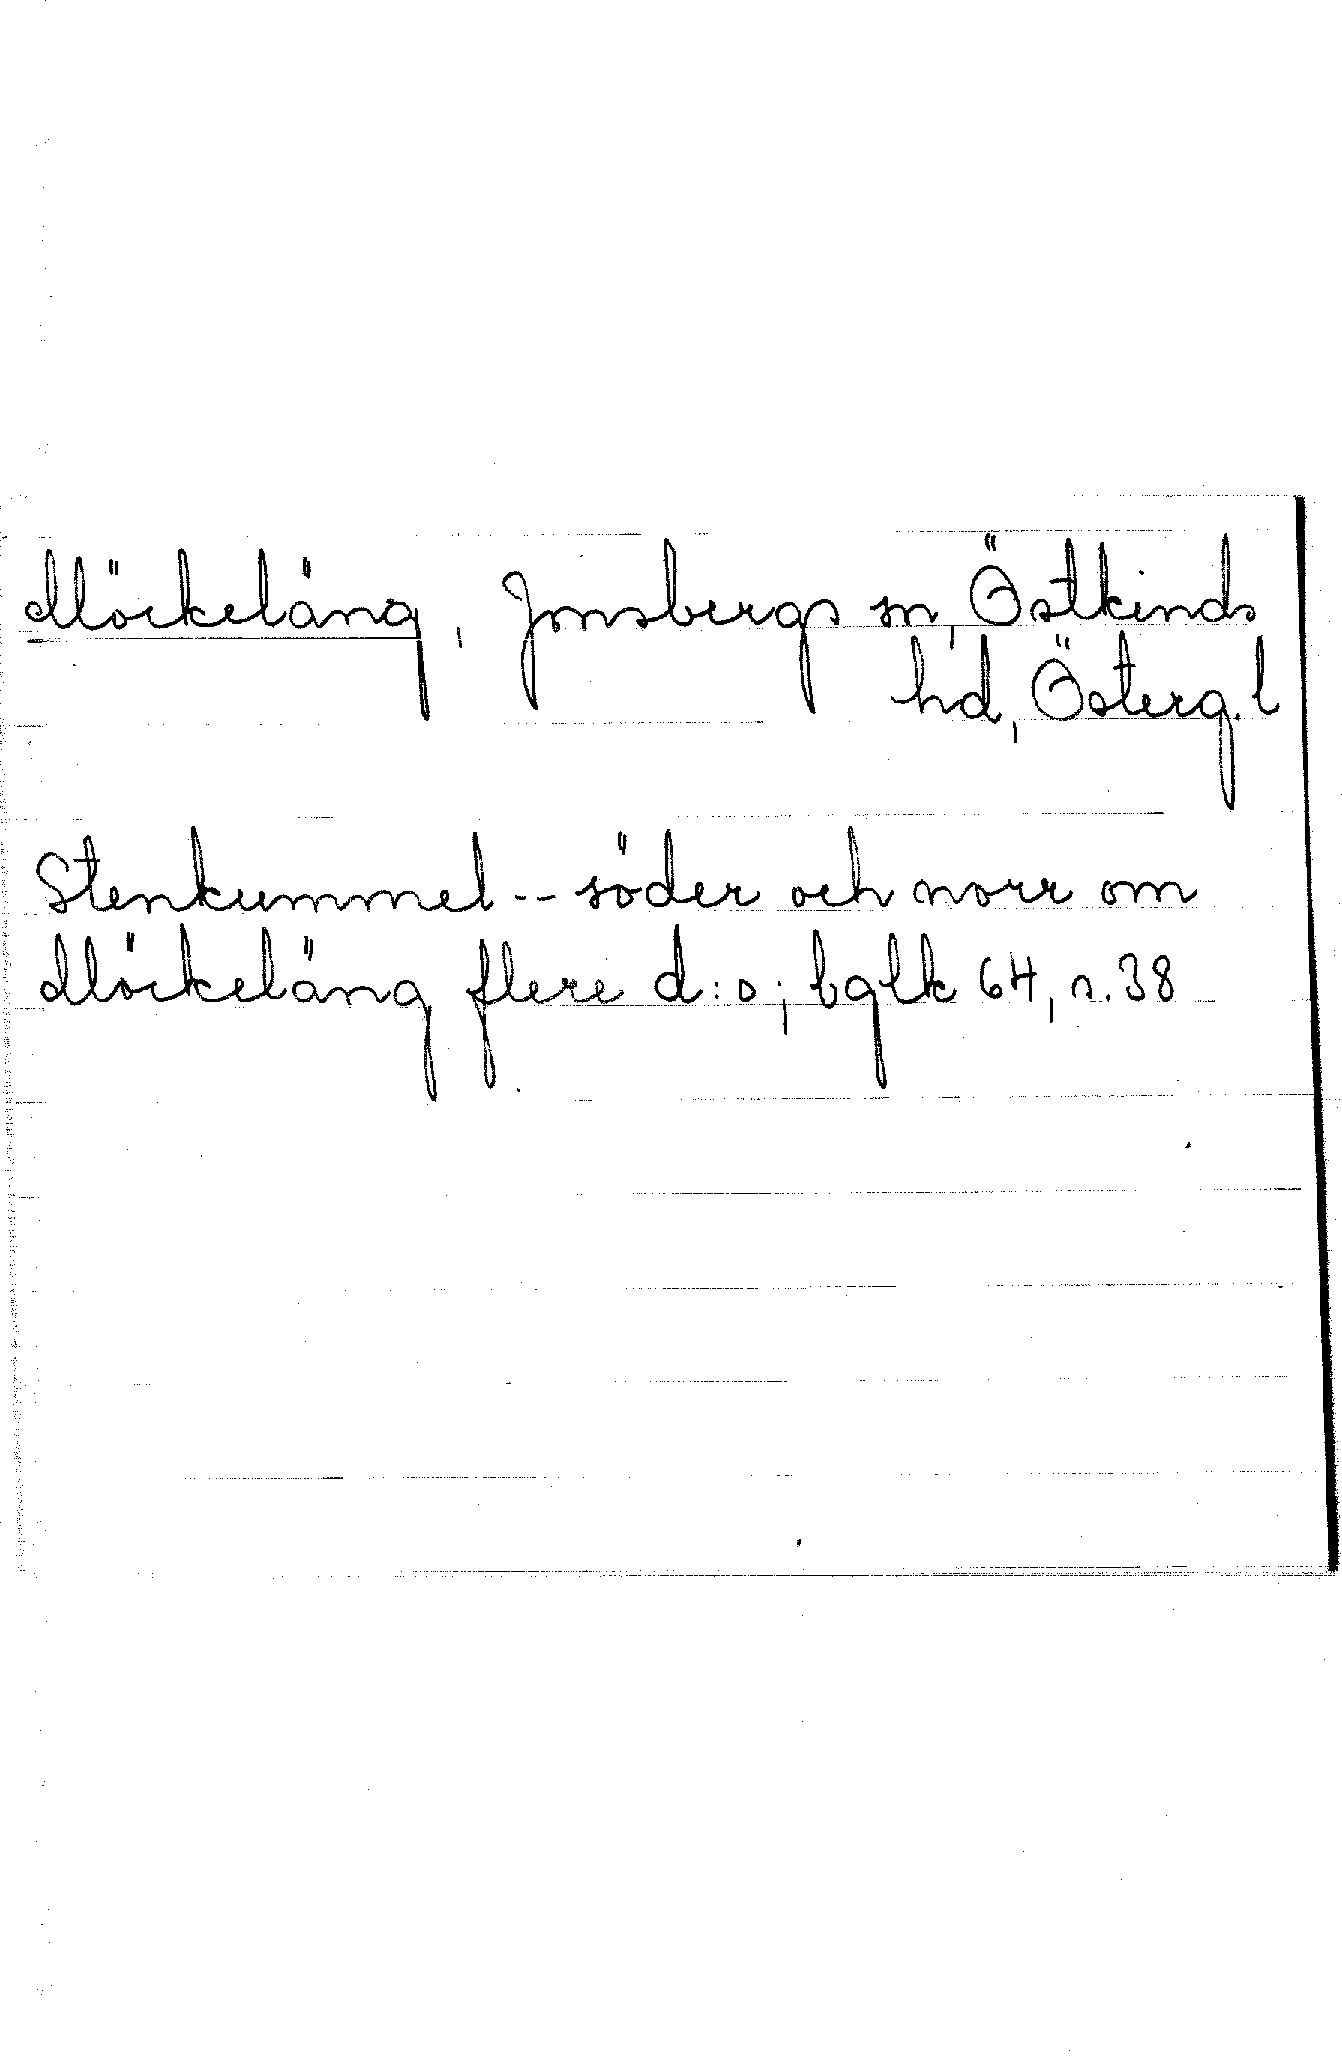 Möckeläng, Jonsbergs sn, Östkinds
hd, Österg. l
Stenkummel -- söder och norr om
Möckeläng flere d:o; bglk 64, s. 38